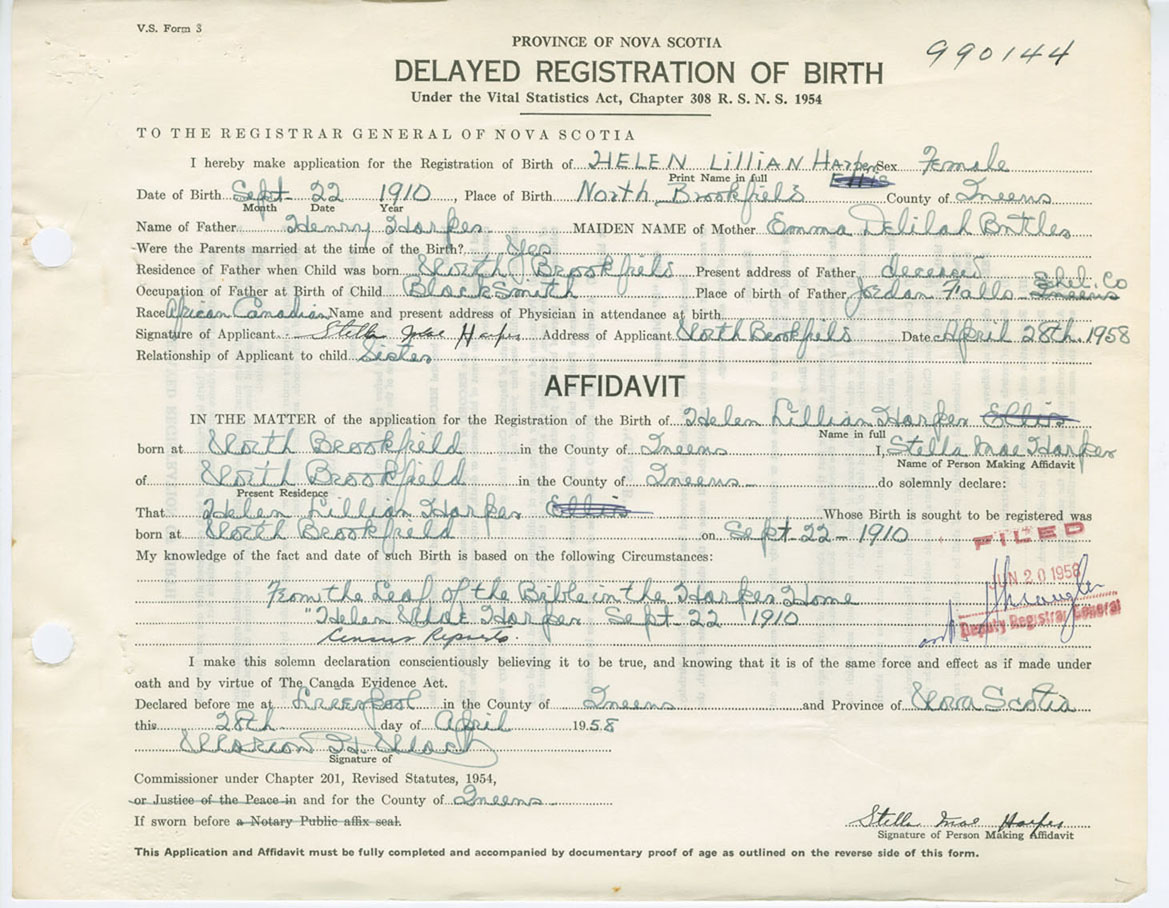 V.S. Form 3
PROVINCE OF NOVA SCOTIA
990144
DELAYED REGISTRATION OF BIRTH
Under the Vital Statistics Act, Chapter 308 R. S. N. S. 1954
TO THE REGISTRAR GENERAL OF NOVA SCOTIA
I hereby make application for the Registration of Birth of HELEN LiLLiAN Harper Sex Female
Print Name in full Ellis
Date of Birth Sept. 22 1910, Place of Birth North Brookfield County of Queens
Month Date Year
Name of Father Henry Harper MAIDEN NAME of Mother Emma Delilah
Were the Parents married at the time of the Birth? Yes
Residence of Father when Child was born North Brookfield Present address of Father deceased
Occupation of Father at Birth of Child BlackSmith Place of birth of Father Jordan Falls Queens Shel. Co
Race African Canadian Name and present address of Physician in attendance at birth
Signature of Applicant Stella Mae Harper Address of Applicant North Brookfield Date April 28th 1958
Relationship of Applicant to child Sister
AFFIDAVIT
IN THE MATTER of the application for the Registration of the Birth of Helen Lillian Harper Ellis
Name in full
born at North Brookfield in the County of Queens I, Stella Mae Harper
Name of Person Making Affidavit
of North Brookfield in the County of Queens do solemnly declare:
Present Residence
That Helen Lillian Harper Ellis Whose Birth is sought to be registered was
born at North Brookfield on Sept. 22 - 1910
FILED
My knowledge of the fact and date of such Birth is based on the following Circumstances:
JUN 20 1958
From the Leaf of the Bible in the Harper Home
"Helen Harper Sept. 22 1910
Deputy Registrar General
Census Reports.
I make this solemn declaration conscientiously believing it to be true, and knowing that it is of the same force and effect as if made under
oath and by virtue of The Canada Evidence Act.
Declared before me at Liverpool in the County of Queens and Province of Nova Scotia
this 28th day of April 1958
Marion H. Mack
Signature of
Commissioner under Chapter 201, Revised Statutes, 1954,
or Justice of the Peace in and for the County of Queens
If sworn before a Notary Public affix seal.
Stella Mae Harper
Signature of Person Making Affidavit
This Application and Affidavit must be fully completed and accompanied by documentary proof of age as outlined on the reverse side of this form.